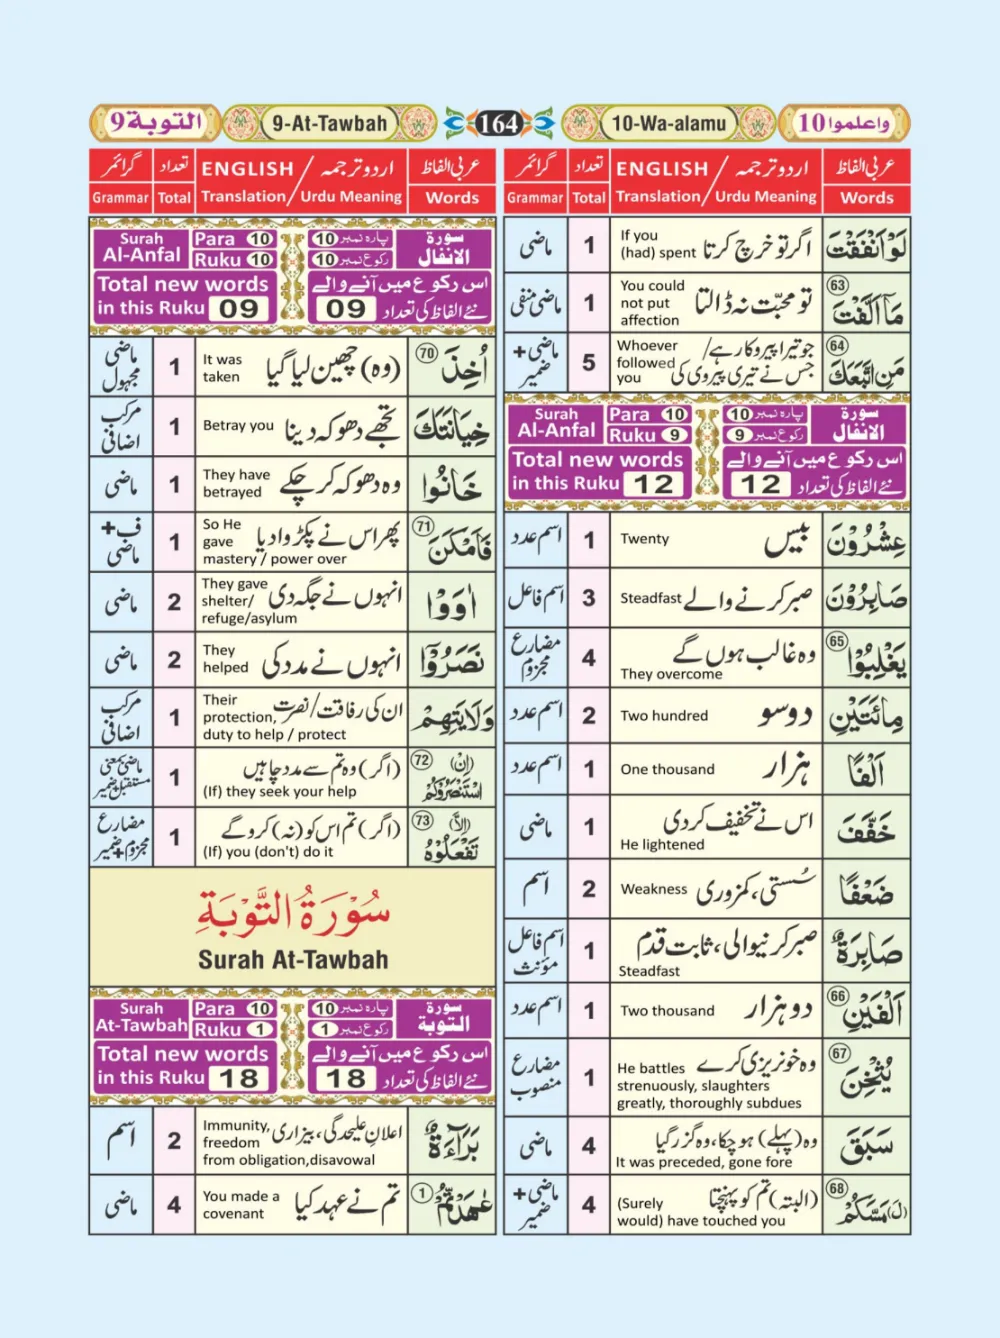 واعلموا 10
10-Wa-alamu
164
9-At-Tawbah
التوبة 9
عربی الفاظ اردو ترجمہ / ENGLISH تعداد گرائمر
Words Urdu Meaning / Translation Total Grammar
لَوْ اَنْفَقْتَ
اگر تو خرچ کرتا
If you
(had) spent
1
ماضی
63 مَا اَلَّفْتَ
تو محبّت نہ ڈالتا
You could
not put
affection
1
ماضی منفی
64 مَنِ اتَّبَعَكَ
جو تیرا پیروکار ہے/
جس نے تیری پیروی کی
Whoever
followed
you
5
ماضی +
ضمیر
سورة
الانفال
پارہ نمبر 10
رکوع نمبر 9
Para 10
Ruku 9
Surah
Al-Anfal
اس رکوع میں آنے والے
نئے الفاظ کی تعداد 12
Total new words
in this Ruku 12
عِشْرُوْنَ
بیس
Twenty
1
اسم عدد
صَابِرُوْنَ
صبر کرنے والے
Steadfast
3
اسم فاعل
65 يَغْلِبُوْا
وہ غالب ہوں گے
They overcome
4
مضارع
مجزوم
مِائَتَيْنِ
دو سو
Two hundred
2
اسم عدد
اَلْفًا
ہزار
One thousand
1
اسم عدد
خَفَّفَ
اس نے تخفیف کر دی
He lightened
1
ماضی
ضَعْفًا
سُستی، کمزوری
Weakness
2
اسم
صَابِرَةٌ
صبر کرنیوالی، ثابت قدم
Steadfast
1
اسم فاعل
مؤنث
66 اَلْفَيْنِ
دو ہزار
Two thousand
1
اسم عدد
67 يُثْخِنَ
وہ خونریزی کرے
He battles
strenuously, slaughters
greatly, thoroughly subdues
1
مضارع
منصوب
سَبَقَ
وہ (پہلے) ہو چکا، وہ گزر گیا
It was preceded, gone fore
4
ماضی
68 (لَ) مَسَّكُمْ
(البتہ) تم کو پہنچتا
(Surely
would) have touched you
4
ماضی +
ضمیر
عربی الفاظ اردو ترجمہ / ENGLISH تعداد گرائمر
Words Urdu Meaning / Translation Total Grammar
سورة
الانفال
پارہ نمبر 10
رکوع نمبر 10
Para 10
Ruku 10
Surah
Al-Anfal
اس رکوع میں آنے والے
نئے الفاظ کی تعداد 09
Total new words
in this Ruku 09
70 اُخِذَ
(وہ) چھین لیا گیا
It was
taken
1
ماضی
مجہول
خِيَانَتَكَ
تجھے دھوکہ دینا
Betray you
1
مرکب
اضافی
خَانُوا
وہ دھوکہ کر چکے
They have
betrayed
1
ماضی
71 فَاَمْكَنَ
پھر اس نے پکڑوا دیا
So He
gave
mastery / power over
1
ف +
ماضی
اٰوَوْا
انہوں نے جگہ دی
They gave
shelter/
refuge/asylum
2
ماضی
نَصَرُوْٓا
انہوں نے مدد کی
They
helped
2
ماضی
وَلَايَتِهِمْ
ان کی رفاقت/نصرت
Their
protection,
duty to help / protect
1
مرکب
اضافی
72 (اِنِ)
اسْتَنْصَرُوْكُمْ
(اگر) وہ تم سے مدد چاہیں
(If) they seek your help
1
ماضی بمعنی
مستقبل+ضمیر
73 (اِلَّا)
تَفْعَلُوْهُ
(اگر) تم اس کو (نہ) کرو گے
(If) you (don't) do it
1
مضارع
مجزوم+ضمیر
سُوْرَةُ التَّوْبَةِ
Surah At-Tawbah
سورة
التوبة
پارہ نمبر 10
رکوع نمبر 1
Para 10
Ruku 1
Surah
At-Tawbah
اس رکوع میں آنے والے
نئے الفاظ کی تعداد 18
Total new words
in this Ruku 18
بَرَآءَةٌ
اعلانِ علیحدگی، بیزاری
Immunity,
freedom
from obligation,disavowal
2
اسم
1 عٰهَدْتُّمْ
تم نے عہد کیا
You made a
covenant
4
ماضی